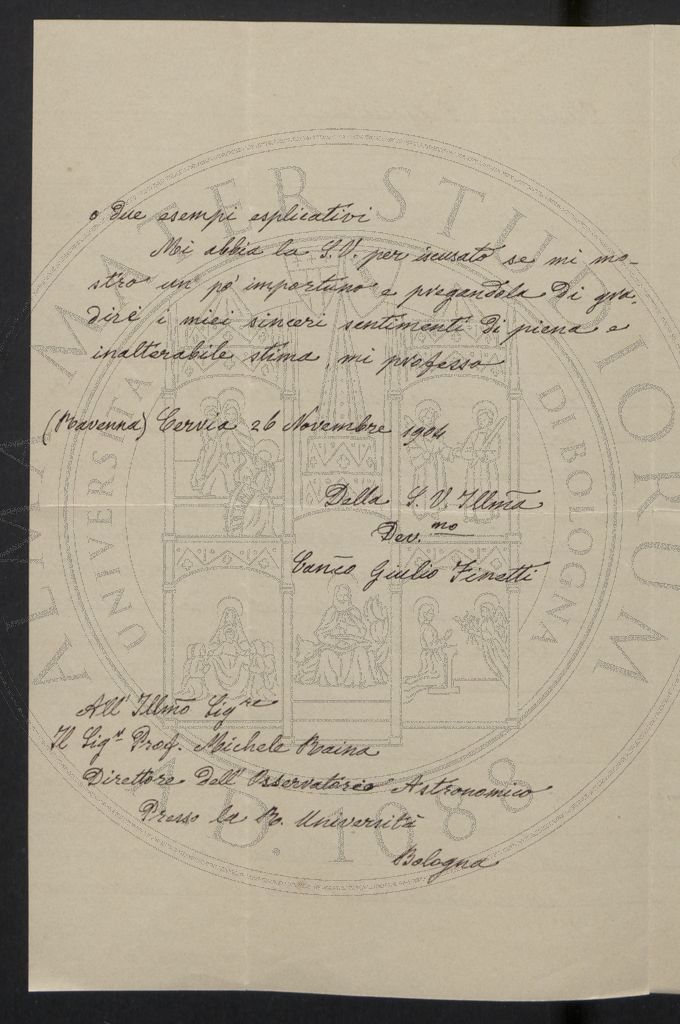 o due esempi esplicativi
Mi abbia la S.V. per iscusato se mi mo-
stro un pò importuno e pregandola di gra-
dire i miei sinceri sentimenti di piena e
inalterabile stima, mi professo
(Ravenna) Cervia 26 Novembre 1904
Della S. V. Illma
Dev.mo
Canco Giulio Finetti
All' Illmo Sigre
Il Sigr Prof. Michele Raina
Direttore dell' Osservatorio Astronomico
Presso la R. Università
Bologna
ALMA MATER STUDIORUM
UNIVERSITA DI BOLOGNA
A.D. 1088